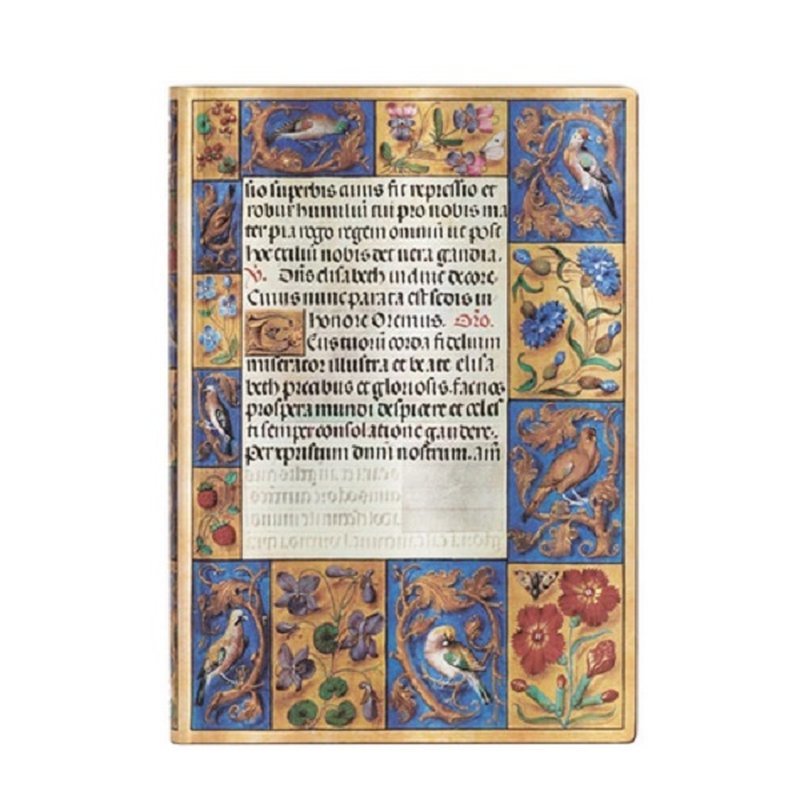 sio superbis auius fit repressio et
robur humiliū tui pro nobis ma
ter pia rogo regem omniū ut post
hoc exiliū nobis det uera gaudia.
V. Dūs elisabeth in diuic decore.
Cuius nunc parata est sedis in
honore Oremus. Orō.
Eus tuorū corda fidelium
miserator illustra et beate elisa
beth precibus et gloriosis. fac nos
prospera mundi despicere et celes
ti semper consolatione gaudere.
Per xpristum dnm̄ nostrum. am̄